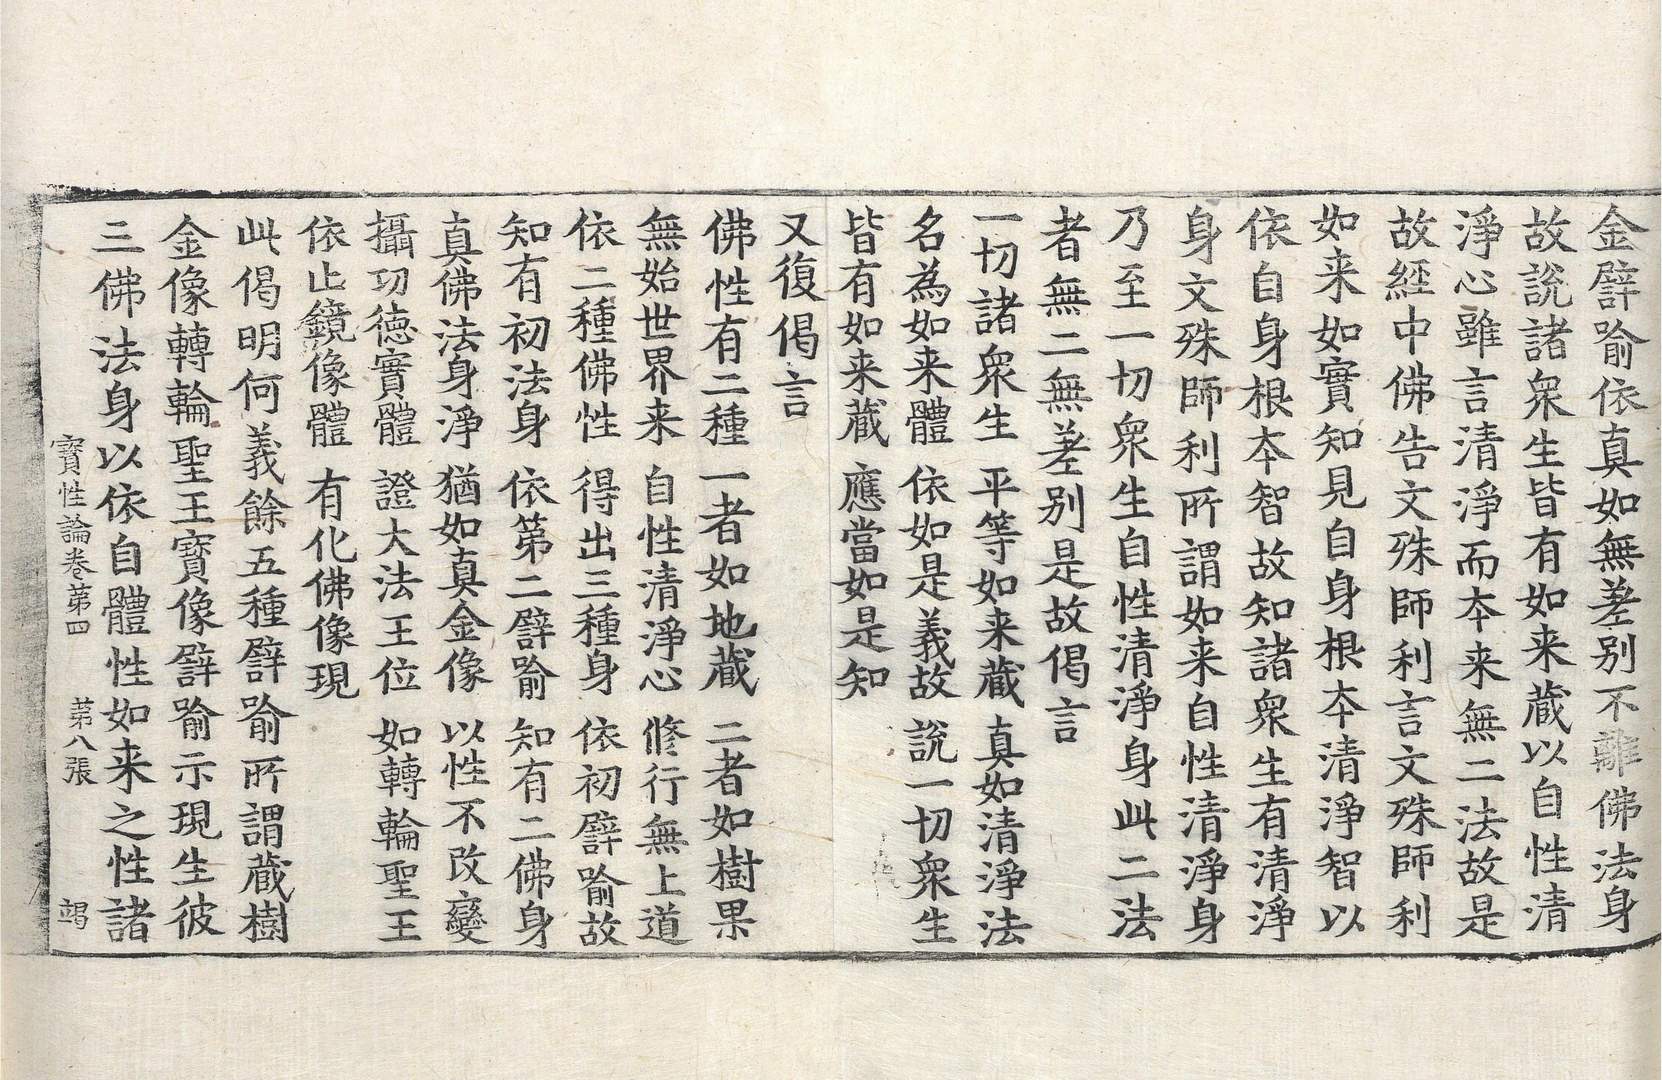 金譬喻依真如無差别不離佛法身
故說諸衆生皆有如来藏以自性清
淨心雖言清淨而夲来無二法故是
故經中佛告文殊師利言文殊師利
如来如實知見自身根夲清淨智以
依自身根夲智故知諸衆生有清淨
身文殊師利所謂如来自性清淨身
乃至一切衆生自性清淨身此二法
者無二無差别是故偈言
一切諸衆生 平等如来藏 真如清淨法
名為如来體 依如是義故 說一切衆生
皆有如来藏 應當如是知
又復偈言
佛性有二種 一者如地藏 二者如樹果
無始世界来 自性清淨心 修行無上道
依二種佛性 得出三種身 依初譬喻故
知有初法身 依第二譬喻 知有二佛身
真佛法身淨 猶如真金像 以性不改變
攝功德實體 證大法王位 如轉輪聖王
依止鏡像體 有化佛像現
此偈明何義餘五種譬喻所謂藏樹
金像轉輪聖王寶像譬喻示現生彼
三佛法身以依自體性如来之性諸
寶性論卷第四 第八張 竭